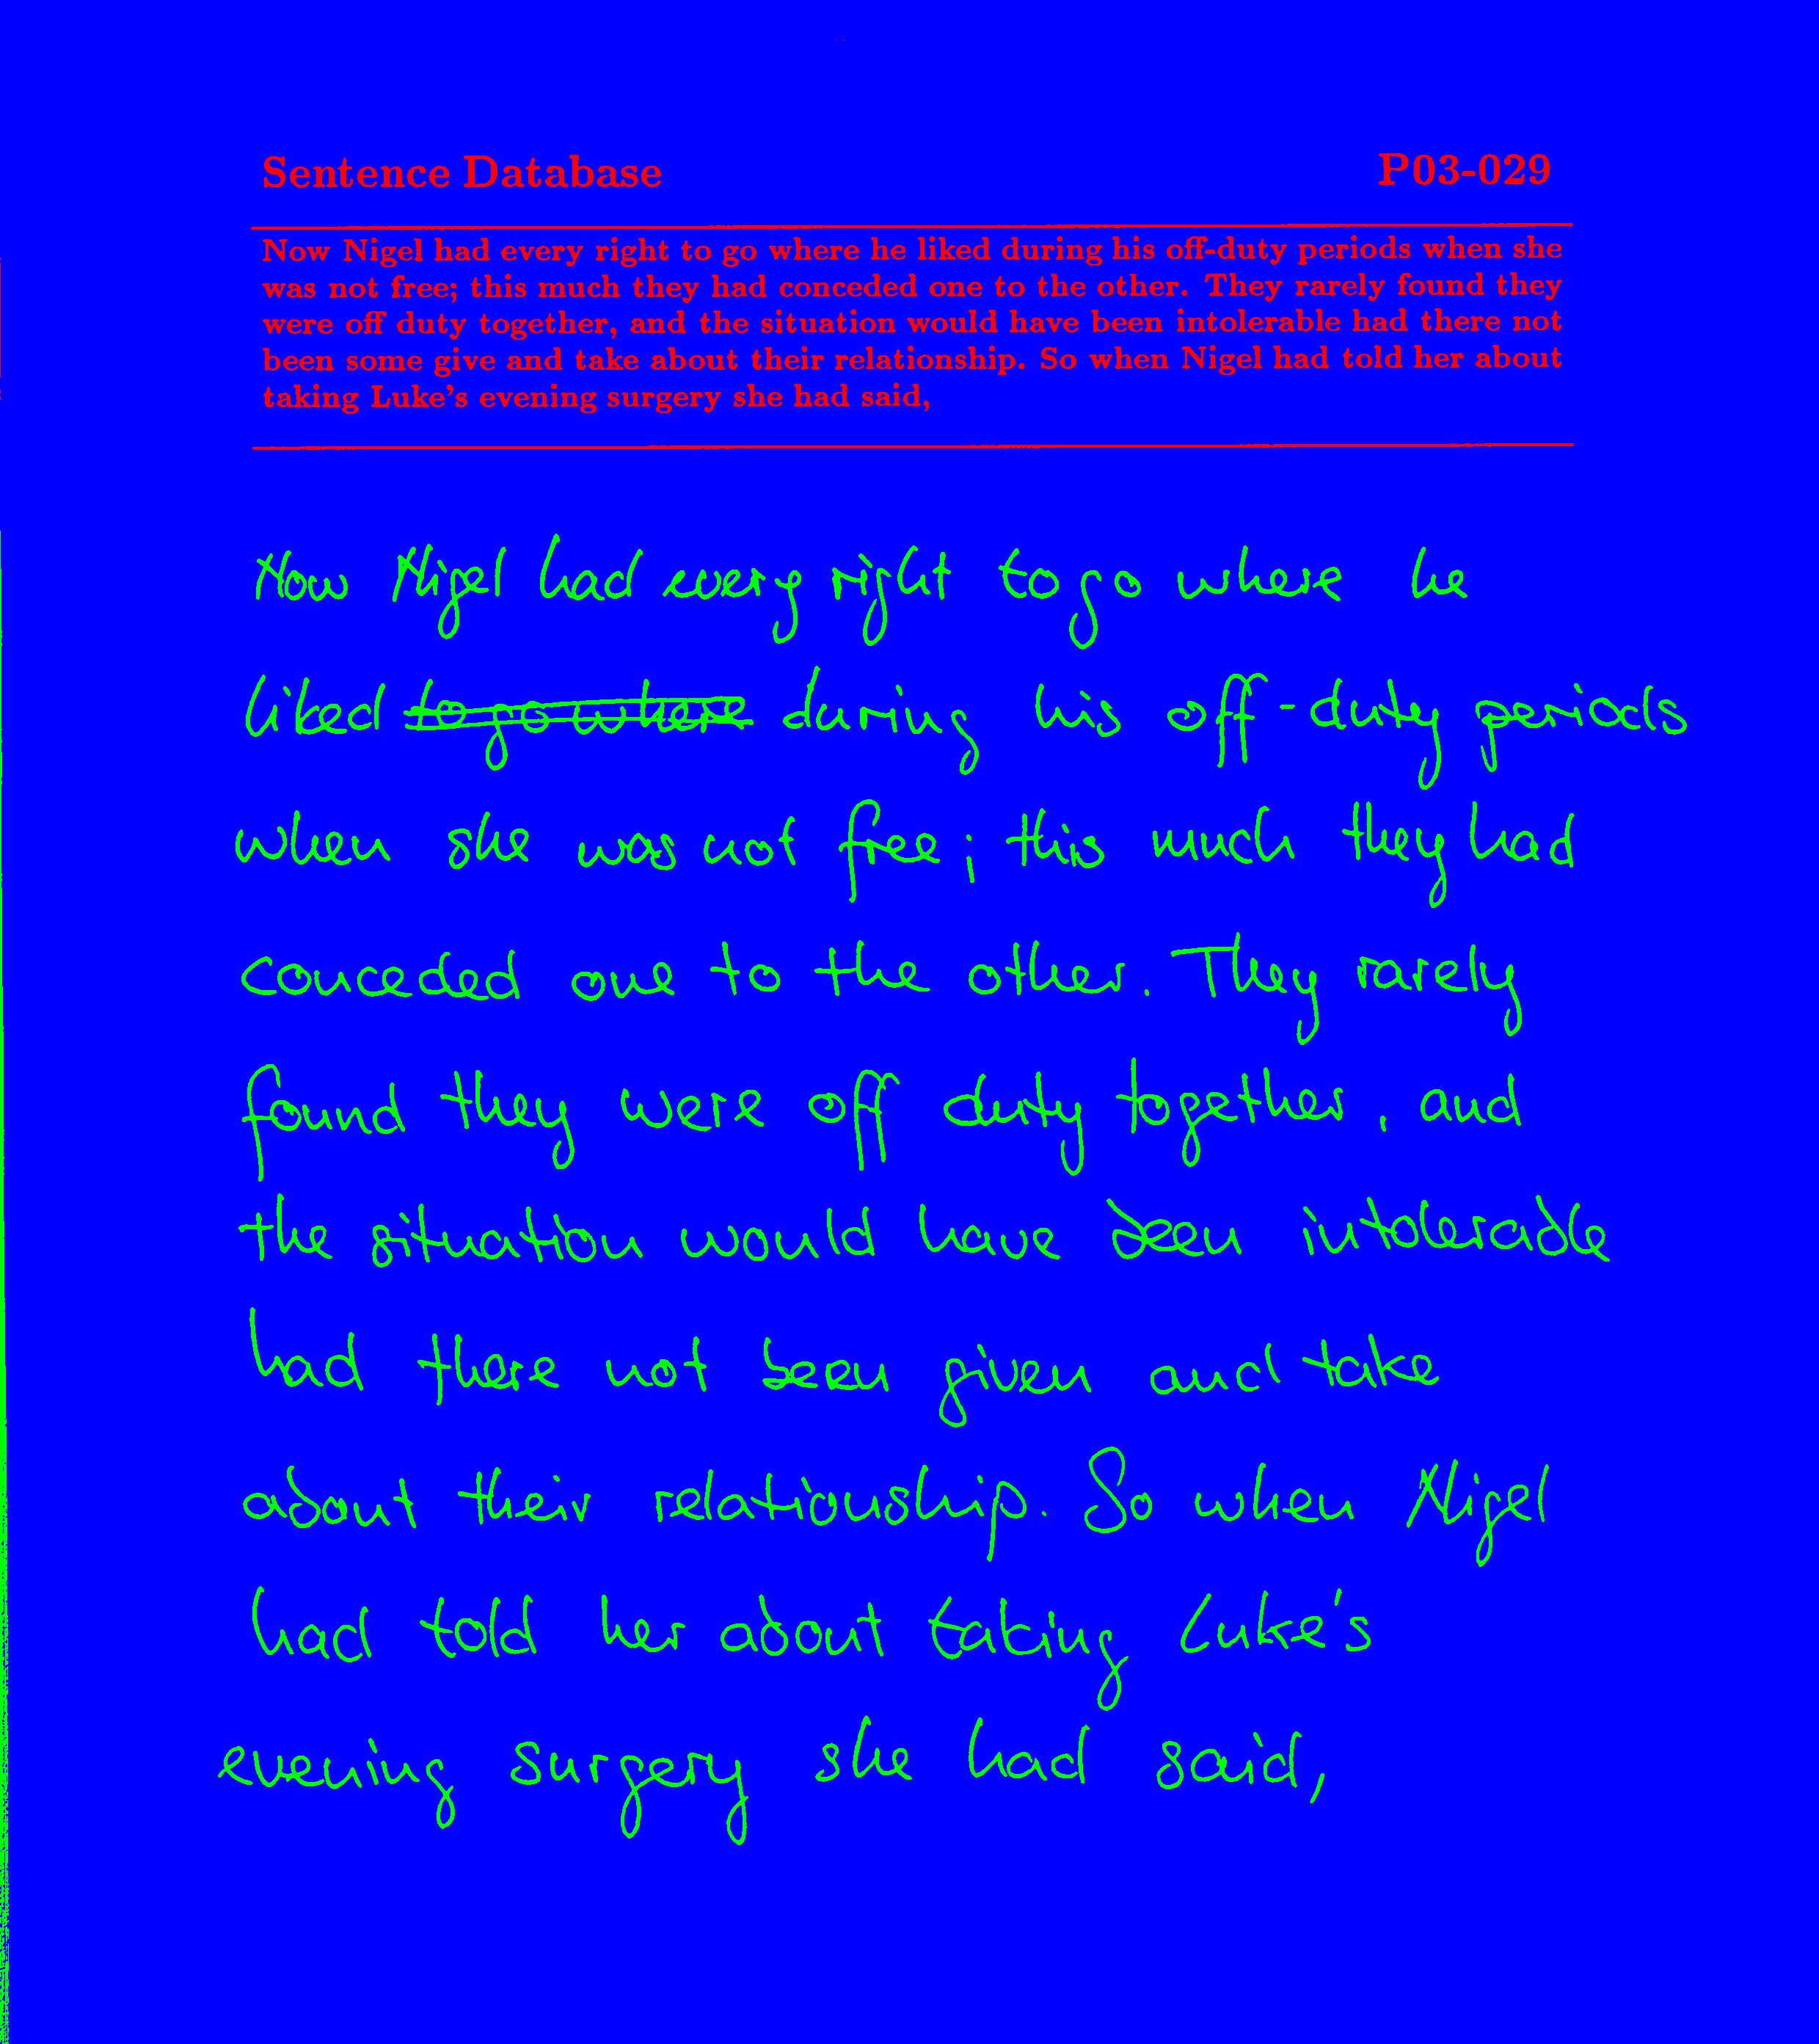 Sentence Database P03-029
Now Nigel had every right to go where he liked during his off-duty periods when she
was not free; this much they had conceded one to the other. They rarely found they
were off duty together, and the situation would have been intolerable had there not
been some give and take about their relationship. So when Nigel had told her about
taking Luke's evening surgery she had said,
Now Nigel had every right to go where he
liked to go where during his off-duty periods
when she was not free; this much they had
conceded one to the other. They rarely
found they were off duty together, and
the situation would have been intolerable
had there not been given and take
about their relationship. So when Nigel
had told her about taking Luke's
evening surgery she had said,